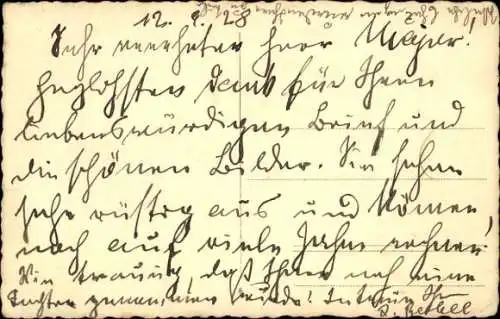 12. 9. 28
Sehr verehrter Herr Major!
Herzlichsten Dank für Ihren
liebenswürdigen Brief und
die schönen Bilder. Sie sehen
sehr rüstig aus und können
noch auf viele Jahre rechnen.
Wie traurig, daß Ihnen noch eine
Tochter genommen wurde! Ihr